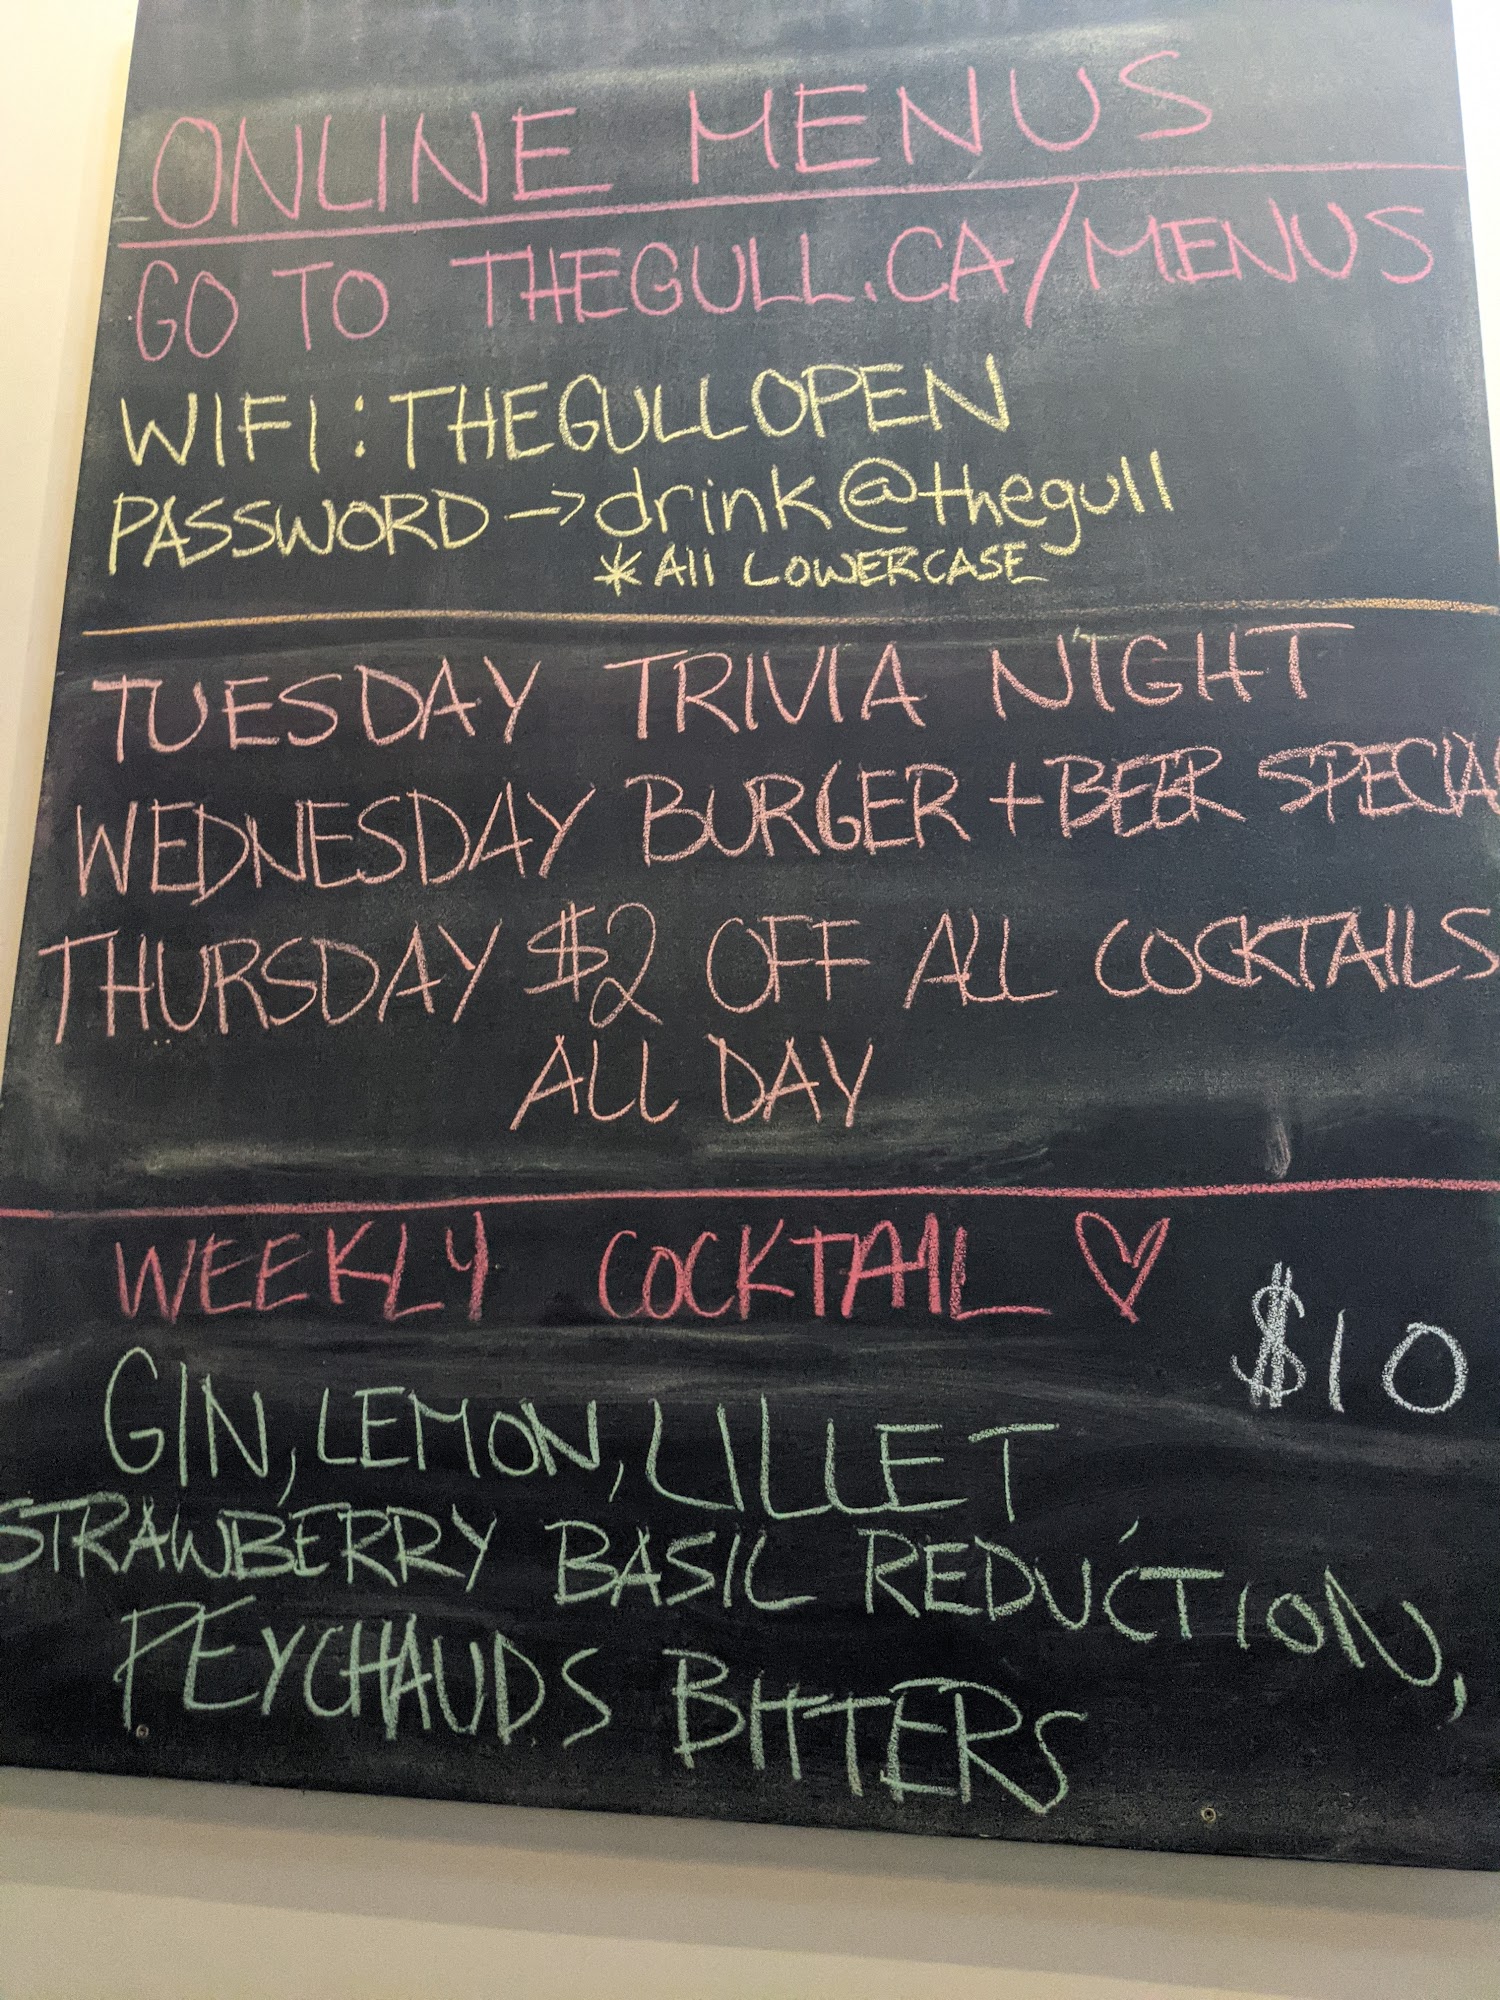 ONLINE MENUS
GO TO THEGULL.CA/MENUS
WIFI: THEGULLOPEN
PASSWORD → drink@thegull
*All LOWERCASE
TUESDAY TRIVIA NIGHT
WEDNESDAY BURGER + BEER SPECIAL
THURSDAY $2 OFF ALL COCKTAILS
ALL DAY
WEEKLY COCKTAIL ♡
$10
GIN, LEMON, LILLET
STRAWBERRY BASIL REDUCTION,
PEYCHAUDS BITTERS